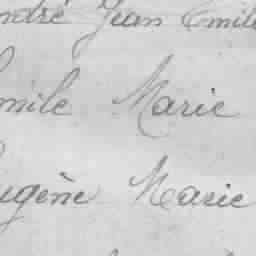 André Jean Emile
Emile Marie
Eugène Marie